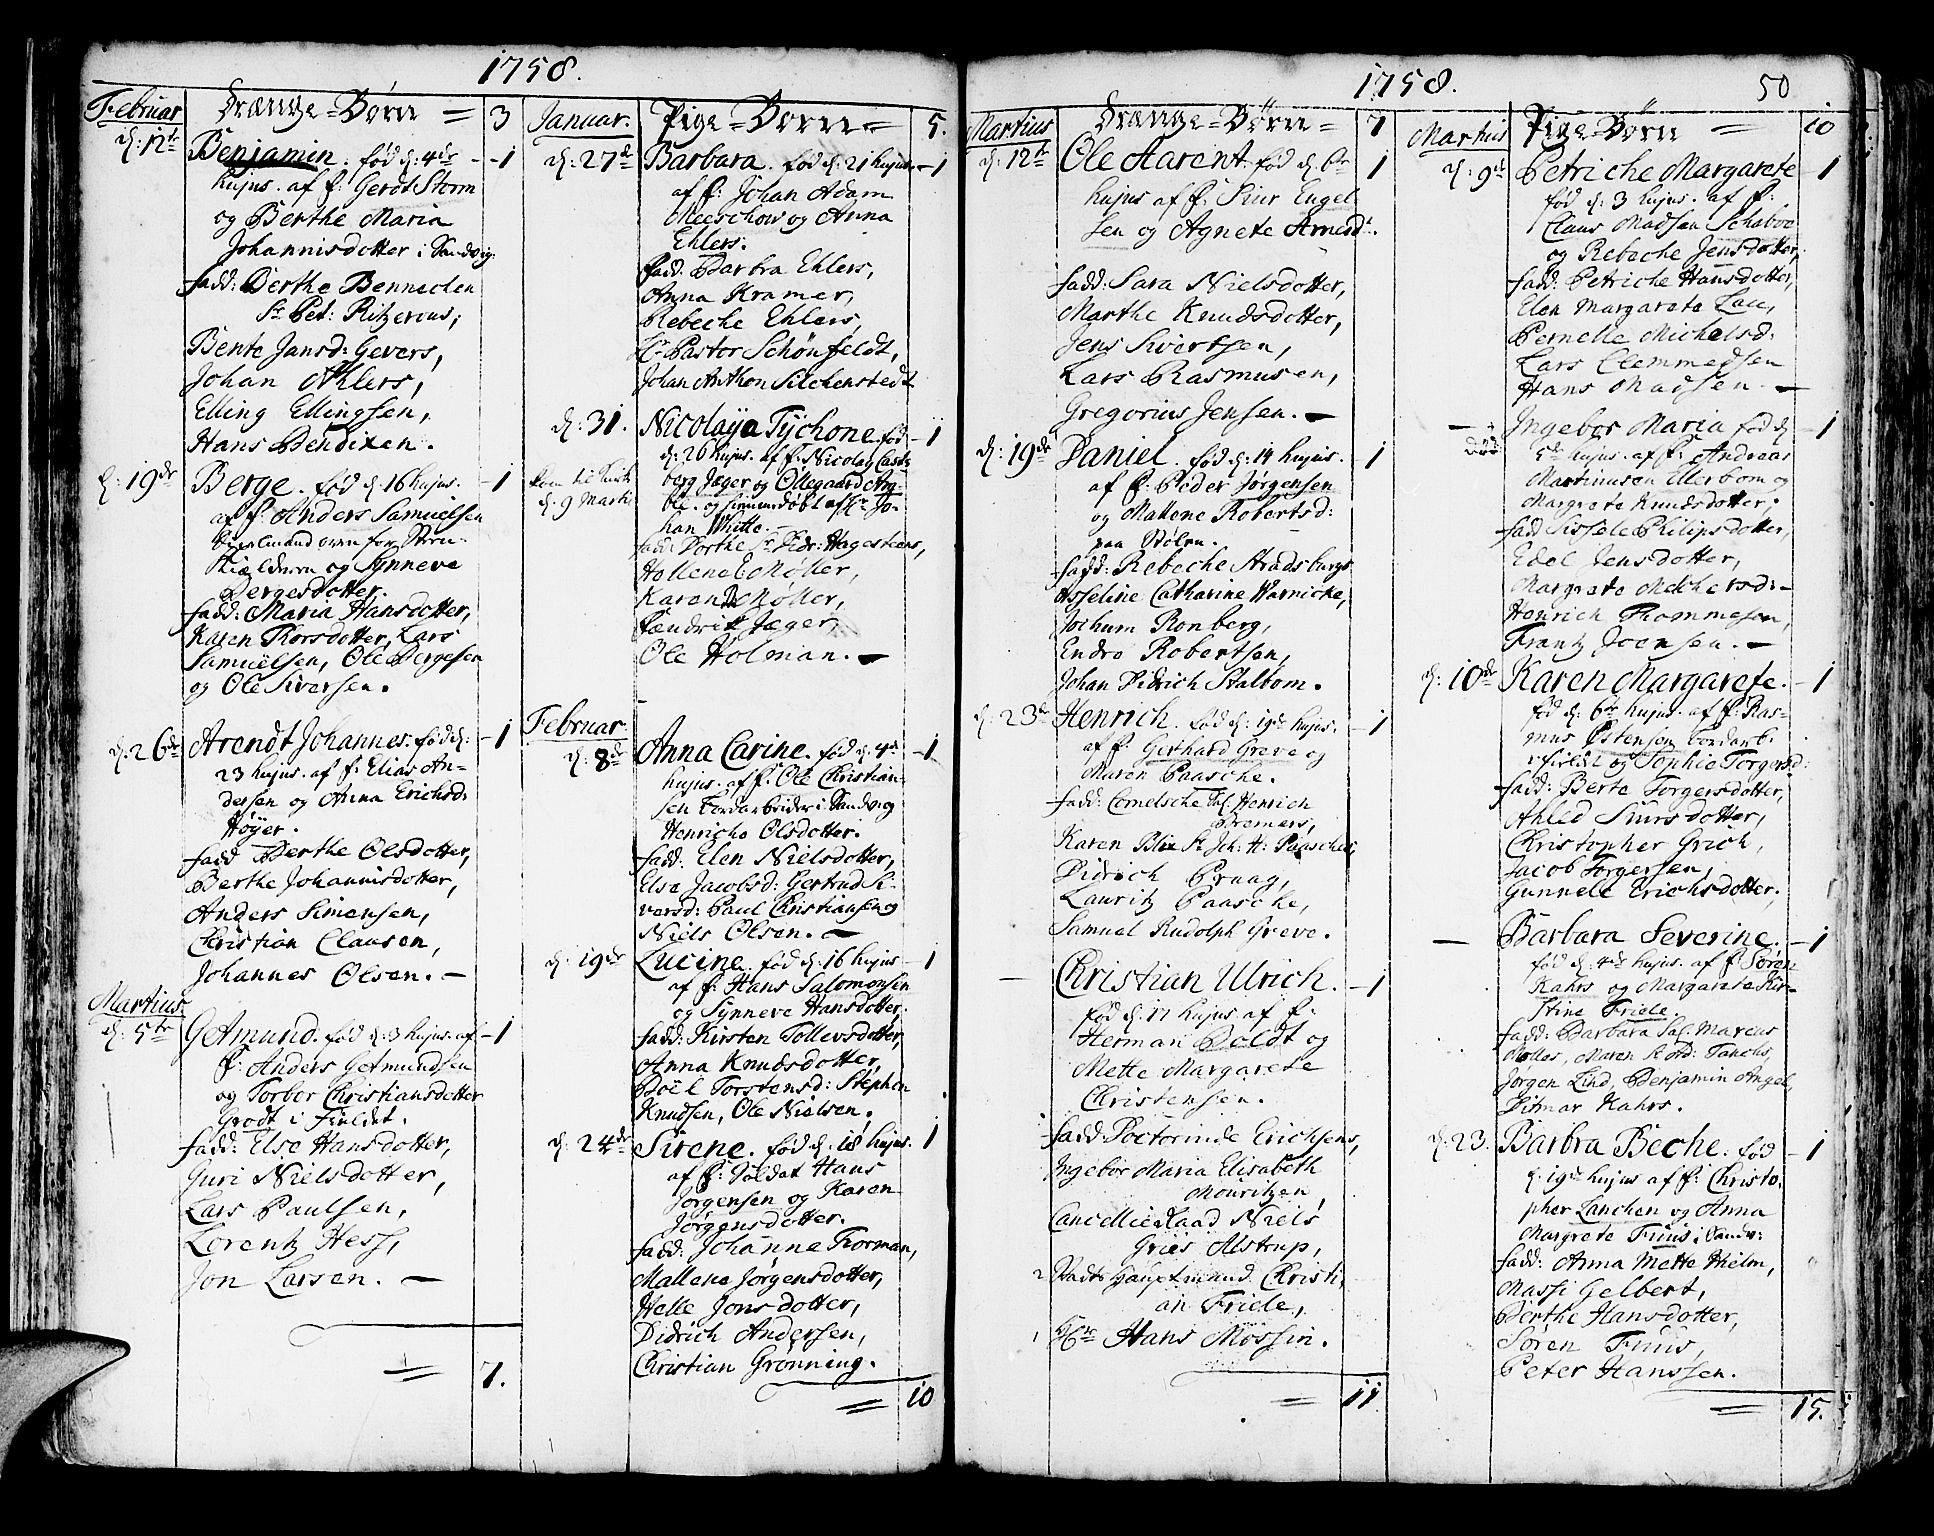 1758.
Februar
Drænge-Børn = 3
d: 12te
Benjamin. fød d: 4de - 1
hujus. af f: Gerdt Storm
og Berthe Maria
Johannisdotter i Sandvig.
fadd: Berthe Bennechen
Sr Pet: Ritzerius;
Bente Jansd: Gevers,
Johan Ahlers,
Elling Ellingsen,
Hans Bendixen.
d: 19de
Berge. fød d: 16 hujus. - 1
af f: Anders Samuelsen
og Synneve
Bergesdotter.
fadd: Maria Hansdotter,
Karen Thorsdotter, Lars
Samuelsen, Ole Bergesen
og Ole Siversen.
d: 26de
Arendt Johannes. fød d: - 1
23 hujus. af f: Elias An-
dersen og Anna Erichsd:
Høyer.
fadd Berthe Olsdotter,
Berthe Johannisdotter,
Anders Simensen,
Christian Clausen,
Johannes Olsen. -
Martius.
d: 5te
Getmund. fød d: 3 hujus. af - 1
f: Anders Getmundsen
og Torbor Christiansdotter
Grodt i Fieldet.
fadd: Else Hansdotter,
Guri Nielsdotter,
Lars Paulsen,
Lorentz Hess,
Jon Larsen. -
= 7.
Januar.
Pige-Børn = 5.
d: 27de
Barbara. fød d: 21 hujus. - 1
af f: Johan Adam
Meeschow og Anna
Ehlers.
fadd: Barbra Ehlers,
Anna Kramer,
Rebeche Ehlers,
Hr Pastor Schönfeldt,
Johan Anthon Silchenstedt
d: 31.
Nicolaya Tychone. fød - 1
d: 26 hujus. af f: Nicolay Cast-
berg Jæger og Ollegaard Am-
ble. og hiemmedøbt af Hr Jo-
han Witte. -
kom til Kirk
d. 9 Marti
fadd: Dorthe Sr Didr: Hagestiens,
Hollena E. Møller,
Karen Møller,
Fændrik Jæger,
Ole Holman. -
Februar.
d: 8de
Anna Carine. fød d: 4de - 1
hujus. af f: Ole Christian-
sen Bordarbeider i Sandvig
Henriche Olsdotter.
fadd: Elen Nielsdotter,
Else Jacobsd: Gertrud Si-
versd: Paul Christiansen og
Niels Olsen. -
d: 19de
Lucine. fød d: 16 hujus - 1
af f: Hans Salomonsen
og Synneve Hansdotter.
fadd: Kirsten Tollevsdotter,
Anna Knudsdotter,
Boël Torstensd: Stephen
Knudsen, Ole Nielsen.
d: 24de
Sirene. fød d. 18 hujus. 1
af f: Soldat Hans
Jørgensen og Karen
Jørgensdotter.
fadd: Johanne Forman,
Mallene Jørgensdotter,
Helle Jonsdotter,
Didrich Andersen,
Christian Grønning.
= 10
1758.
50
Martius
Drænge-Børn = 7
d: 12te
Ole Aarent. fød d. 6te 1
hujus af f: Siur Engel-
sen og Agnete Arnesd:
fadd: Sara Nielsdotter,
Marthe Knudsdotter,
Jens Sivertsen,
Lars Rasmusen,
Gregorius Jensen. -
d: 19de
Daniel. fød d: 14 hujus. 1
af f: Peder Jørgensen
og Mallene Robertsd:
paa Stølen.
fadd: Rebeche Stradsburgs
Asseline Catharine Warnicke,
Jochum Ronberg,
Endre Robertsen,
Johan Didrich Stalbom.
d: 23de
Henrich. fød d: 19de hujus. - 1
af f: Gerthard Greve og
Maren Paasche.
fadd: Cornelsche Sal. Henrich
Bremers,
Karen Blix Sr Joh: H: Paasches,
Didrich Praag,
Lauritz Paasche,
Samuel Rudolph Greve.
-
Christian Ulrich. - 1
fød d: 17 hujus af f:
Herman Boldt og
Mette Margarete
Christensen.
fadd: Doctorinde Erichsens,
Ingebor Maria Elisabeth
Mouritzen,
Cancellie Raad Niels
Gries Alstrup,
2 Stadts Hauptmand Christi-
an Friele,
1 Hr Hans Mossin.
= 11
Martius
Pige-Børn = 10
d: 9de
Petriche Margarete - 1
fød d: 3 hujus. af f:
Claus Madsen Schaboe
og Rebeche Jensdotter,
fadd: Petriche Hansdotter,
Elen Margarete Lau,
Pernelle Michelsd:
Lars Clemmedsen
Hans Madsen. -
- død
Ingebor Maria fød d - 1
5te hujus. af f: Andreas
Martinusen Ellerbom og
Margrete Knudsdotter.
fadd Sissele Philipsdotter,
Edel Jensdotter,
Margrete Melchersd: -
Henrich Thommesen,
Frantz Joensen. -
d: 10de
Karen Margarete. - 1
fød d: 6te hujus. af f: Ras-
mus Østensen bordarb.
og Sophie Torgersd:
fadd: Berte Torgersdotter,
Ahled Siursdotter,
Christopher Grich,
Jacob Torgersen,
Gunnele Erichsdotter.
-
Barbara Severine. - 1
fød d: 4de hujus. af f: Søren
Kahrs og Margarete Kir-
stine Friele.
fadd: Barbara Sal. Marcus
Møller, Maren Kord: Tanchs,
Jørgen Lind, Benjamin Angel,
Ditmar Kahrs.
d: 23.
Barbra Beche. fød - 1
d. 19de hujus af f: Christo-
pher Lanchen og Anna
Margrete Fuus i Sandv:
fadd: Anna Mette Hielm,
Massi Gelbert,
Berthe Hansdotter,
Søren Fuus,
Peter Hanssen.
= 15.